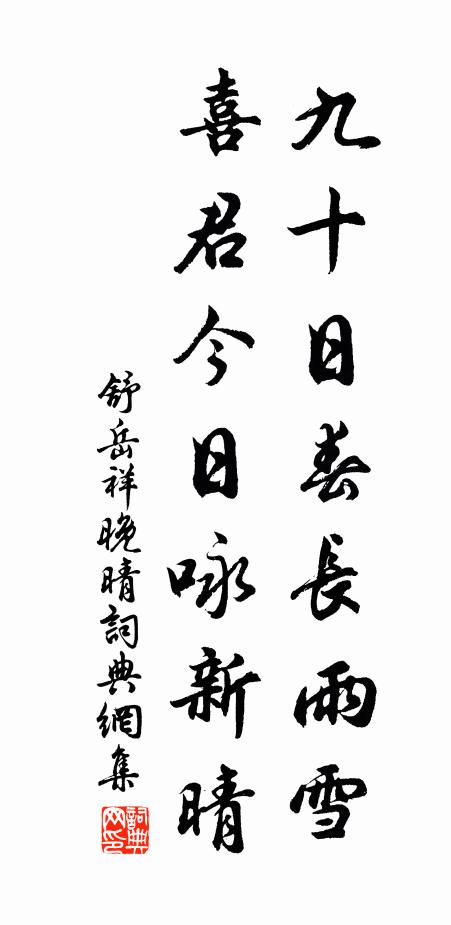 九十日春長雨雪
喜君今日咏新晴
舒岳祥晚晴詞典網集
詞典网印